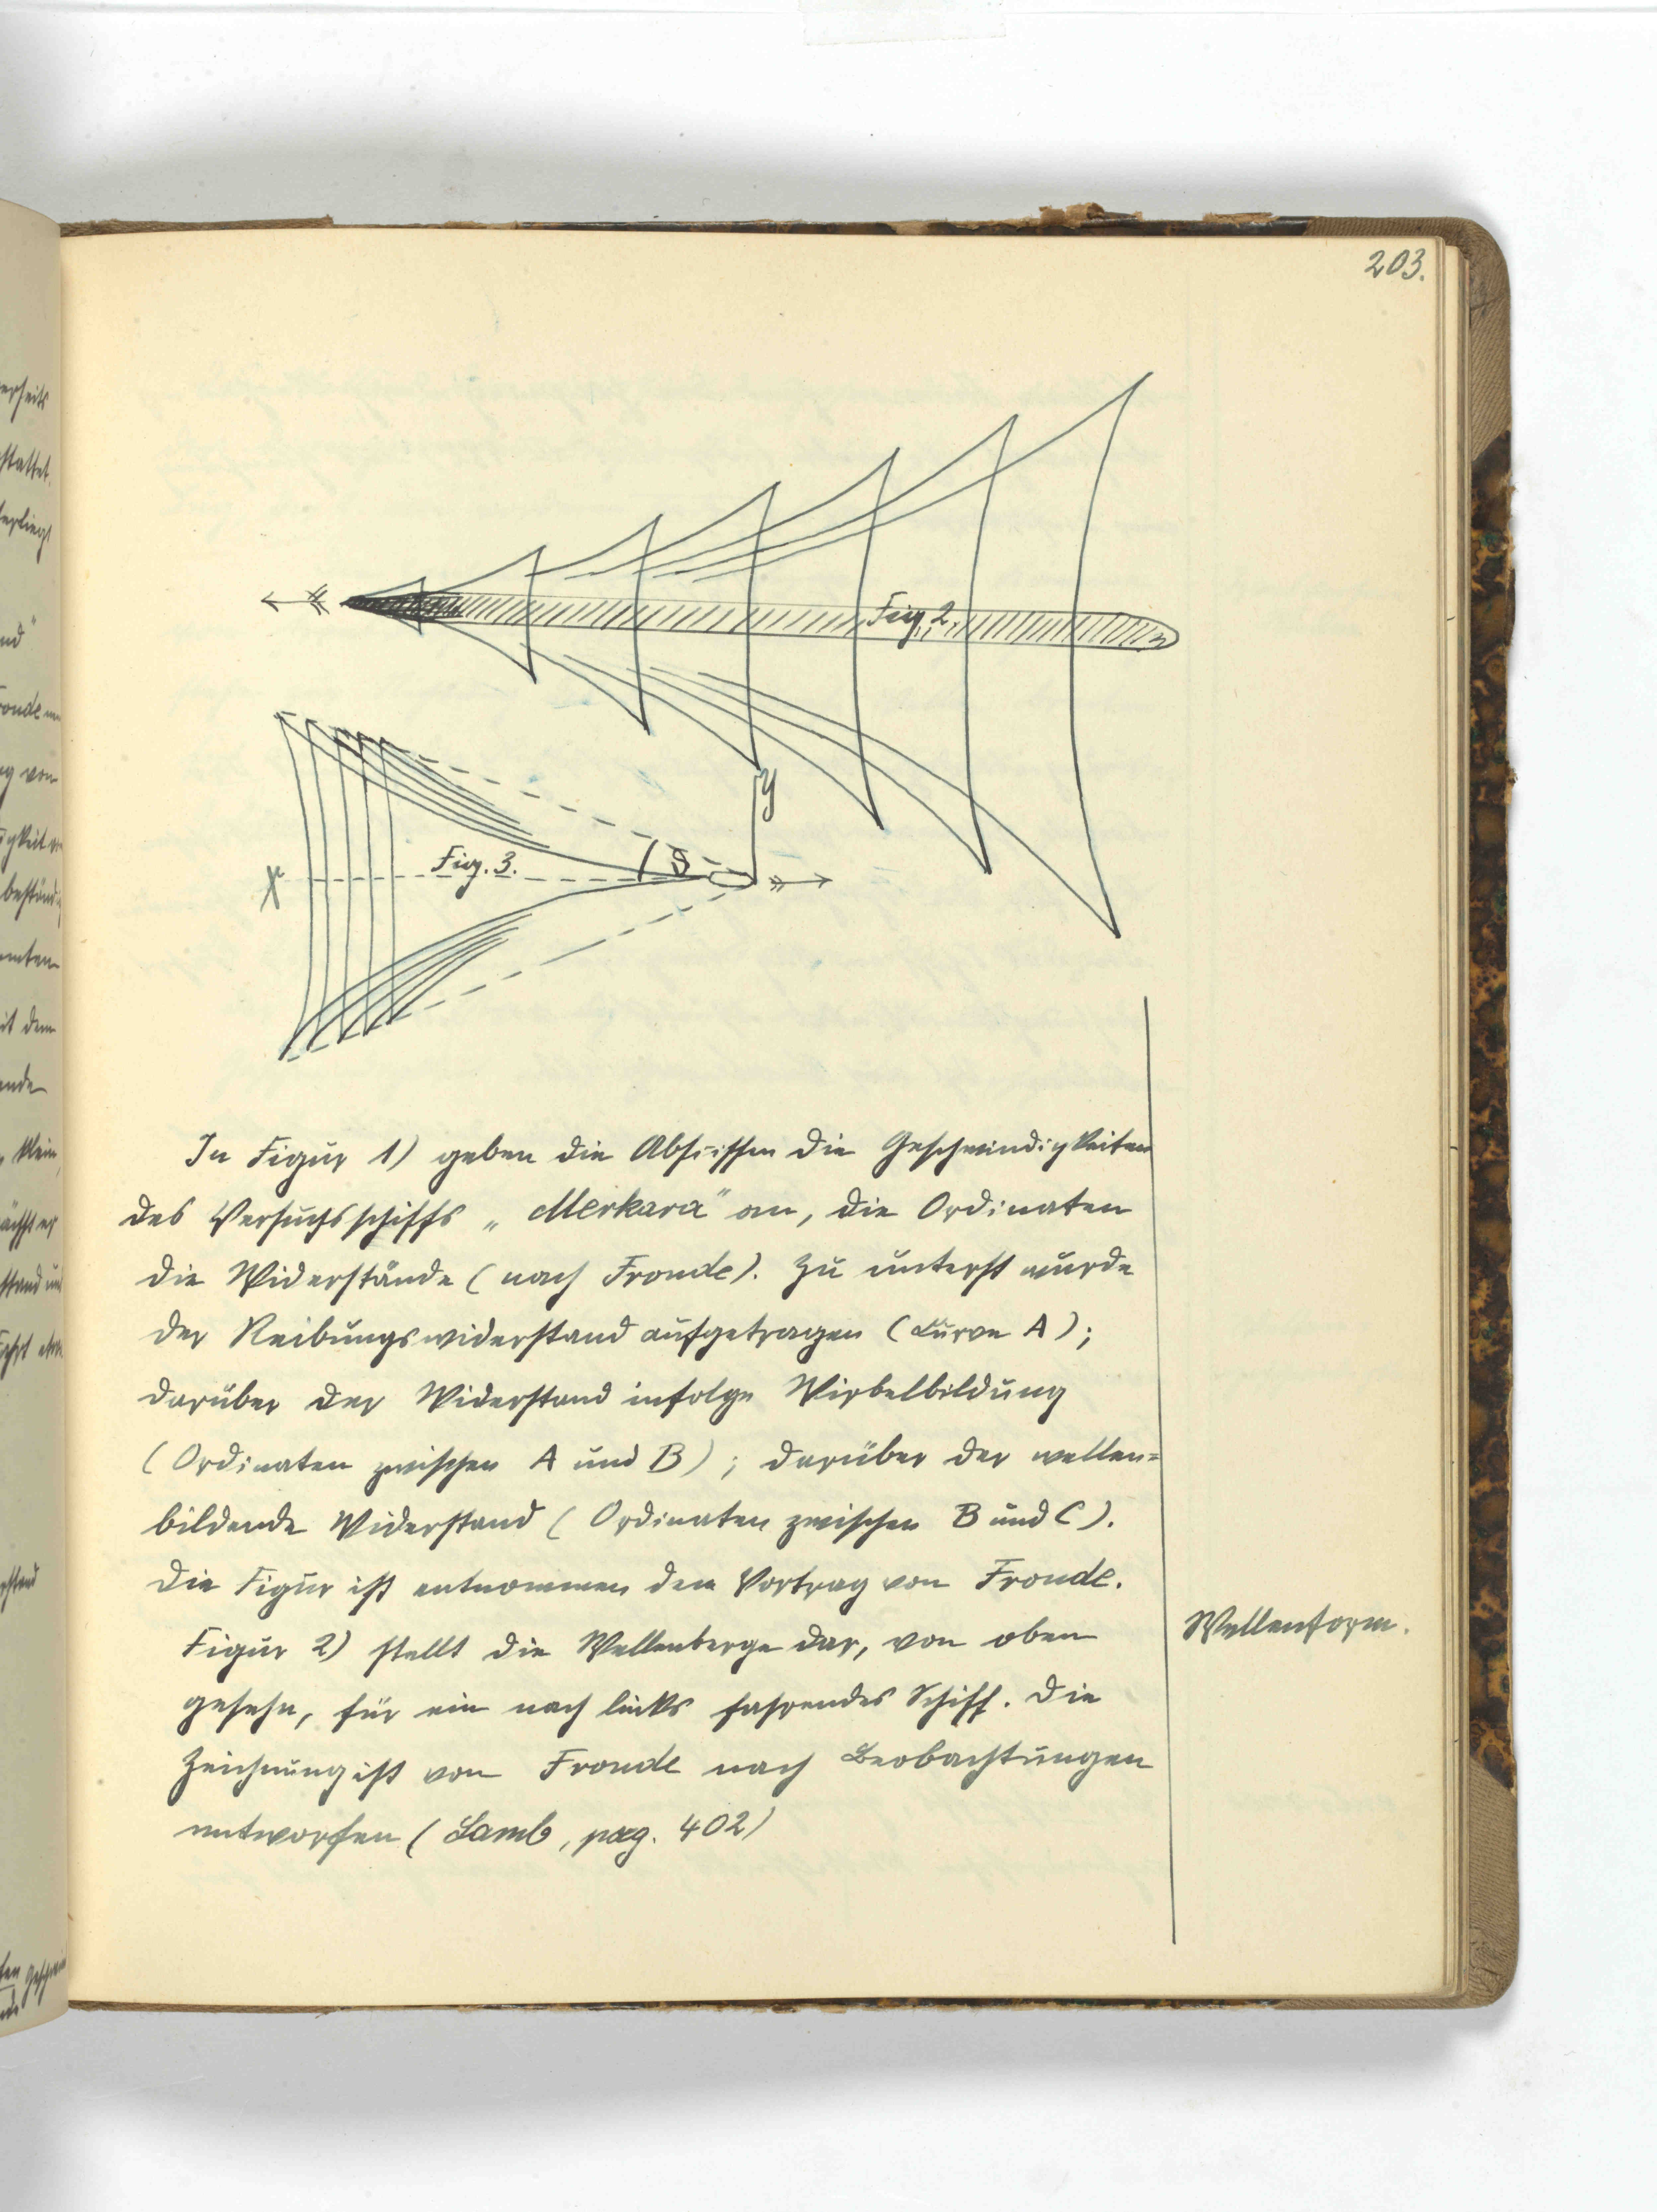 203.
Fig. 2.
y
Fig. 3.
ϑ
X
In Figur 1) geben die Abscissen die Geschwindigkeiten
des Versuchsschiffs „Merkara" an, die Ordinaten
die Widerstände (nach Froude). Zu unterst wurde
der Reibungswiderstand aufgetragen (Curve A);
darüber der Widerstand infolge Wirbelbildung
(Ordinaten zwischen A und B); darüber der wellen=
bildende Widerstand (Ordinaten zwischen B und C).
Die Figur ist entnommen dem Vortrag von Froude.
Figur 2) stellt die Wellenberge dar, von oben
Wellenform.
gesehn, für ein nach links fahrendes Schiff. Die
Zeichnung ist von Froude nach Beobachtungen
entworfen (Lamb, pag. 402)